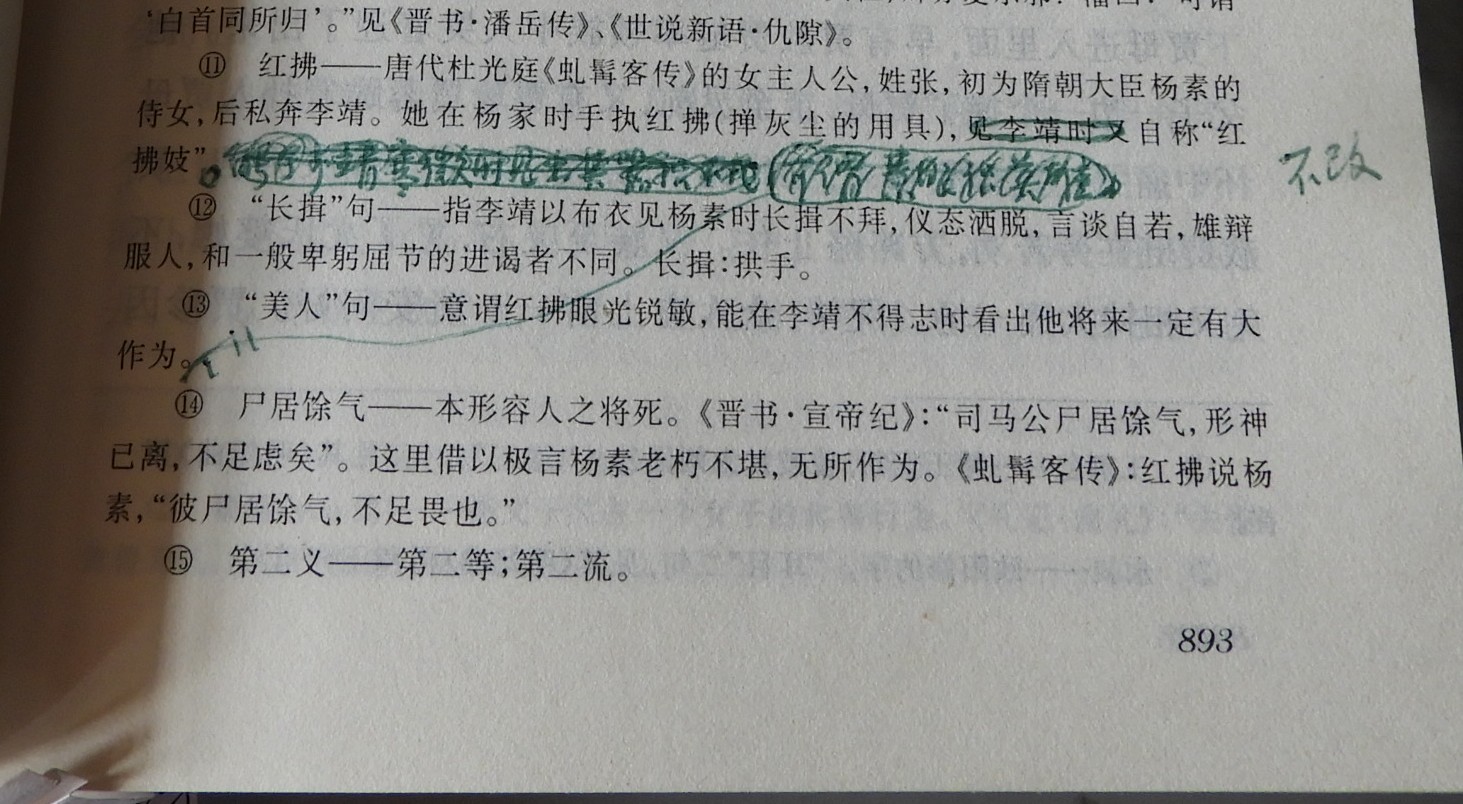 ‘白首同所归’。”见《晋书·潘岳传》、《世说新语·仇隙》。
⑪ 红拂——唐代杜光庭《虬髯客传》的女主人公，姓张，初为隋朝大臣杨素的
侍女，后私奔李靖。她在杨家时手执红拂(掸灰尘的用具)，见李靖时又自称“红
拂妓”。
不改
⑫ “长揖”句——指李靖以布衣见杨素时长揖不拜，仪态洒脱，言谈自若，雄辩
服人，和一般卑躬屈节的进谒者不同。长揖：拱手。
⑬ “美人”句——意谓红拂眼光锐敏，能在李靖不得志时看出他将来一定有大
作为。
⑭ 尸居馀气——本形容人之将死。《晋书·宣帝纪》：“司马公尸居馀气，形神
已离，不足虑矣”。这里借以极言杨素老朽不堪，无所作为。《虬髯客传》：红拂说杨
素，“彼尸居馀气，不足畏也。”
⑮ 第二义——第二等；第二流。
893